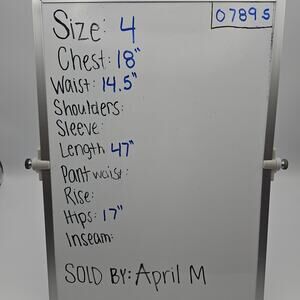 07895
Size: 4
Chest: 18"
Waist: 14.5"
Shoulders:
Sleeve:
Length 47"
Pant waist:
Rise:
Hips: 17"
Inseam:
SOLD BY: April M